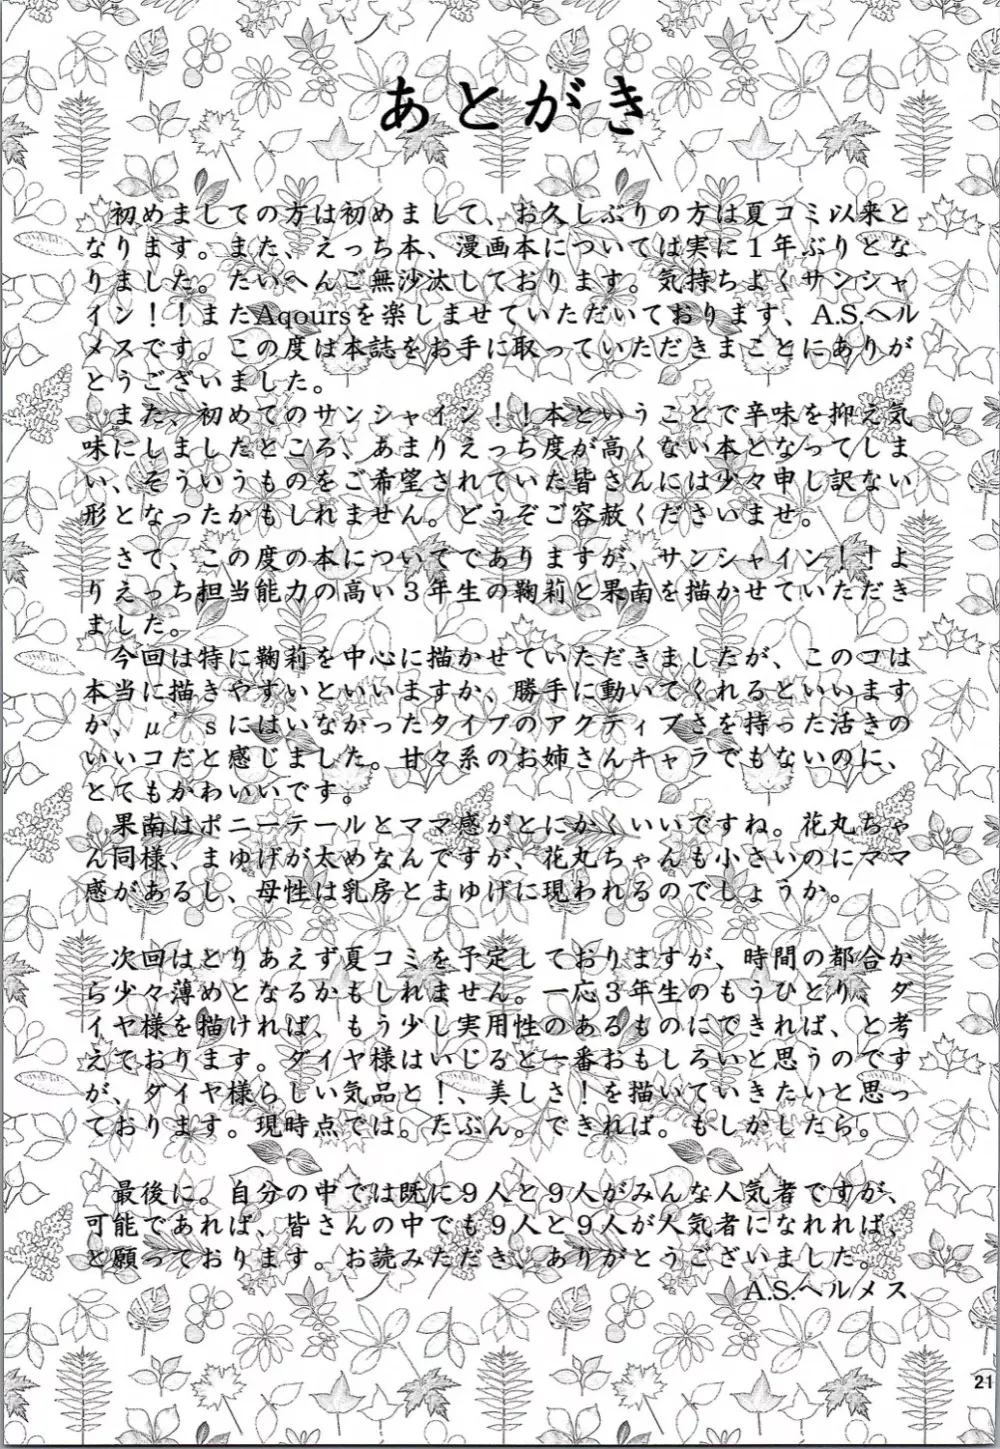 あとがき
初めましての方は初めまして、お久しぶりの方は夏コミ以来と
なります。また、えっち本、漫画本については実に１年ぶりとな
りました。たいへんご無沙汰しております。気持ちよくサンシャ
イン！！またAqoursを楽しませていただいております、A.S.ヘル
メスです。この度は本誌をお手に取っていただきまことにありが
とうございました。
また、初めてのサンシャイン！！本ということで辛味を抑え気
味にしましたところ、あまりえっち度が高くない本となってしま
い、そういうものをご希望されていた皆さんには少々申し訳ない
形となったかもしれません。どうぞご容赦くださいませ。
さて、この度の本についてでありますが、サンシャイン！！よ
りえっち担当能力の高い３年生の鞠莉と果南を描かせていただき
ました。
今回は特に鞠莉を中心に描かせていただきましたが、このコは
本当に描きやすいといいますか、勝手に動いてくれるといいます
か、μ'ｓにはいなかったタイプのアクティブさを持った活きの
いいコだと感じました。甘々系のお姉さんキャラでもないのに、
とてもかわいいです。
果南はポニーテールとママ感がとにかくいいですね。花丸ちゃ
ん同様、まゆげが太めなんですが、花丸ちゃんも小さいのにママ
感があるし、母性は乳房とまゆげに現われるのでしょうか。
次回はとりあえず夏コミを予定しておりますが、時間の都合か
ら少々薄めとなるかもしれません。一応３年生のもうひとり、ダ
イヤ様を描ければ、もう少し実用性のあるものにできれば、と考
えております。ダイヤ様はいじると一番おもしろいと思うのです
が、ダイヤ様らしい気品と！、美しさ！を描いていきたいと思っ
ております。現時点では。たぶん。できれば。もしかしたら。
最後に。自分の中では既に９人と９人がみんな人気者ですが、
可能であれば、皆さんの中でも９人と９人が人気者になれれば、
と願っております。お読みただき、ありがとうございました。
A.S.ヘルメス
21